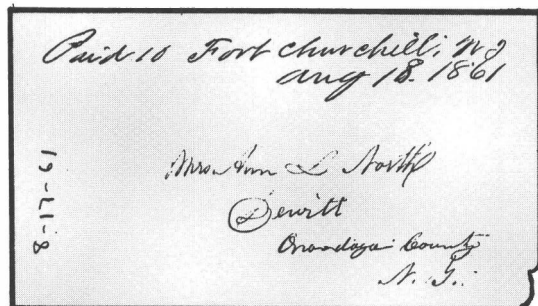 Paid 10 Fort churchill, N T
Aug 18. 1861
8-17-61
Mrs Ann L North
Dewitt
Onondaga County
N. Y.